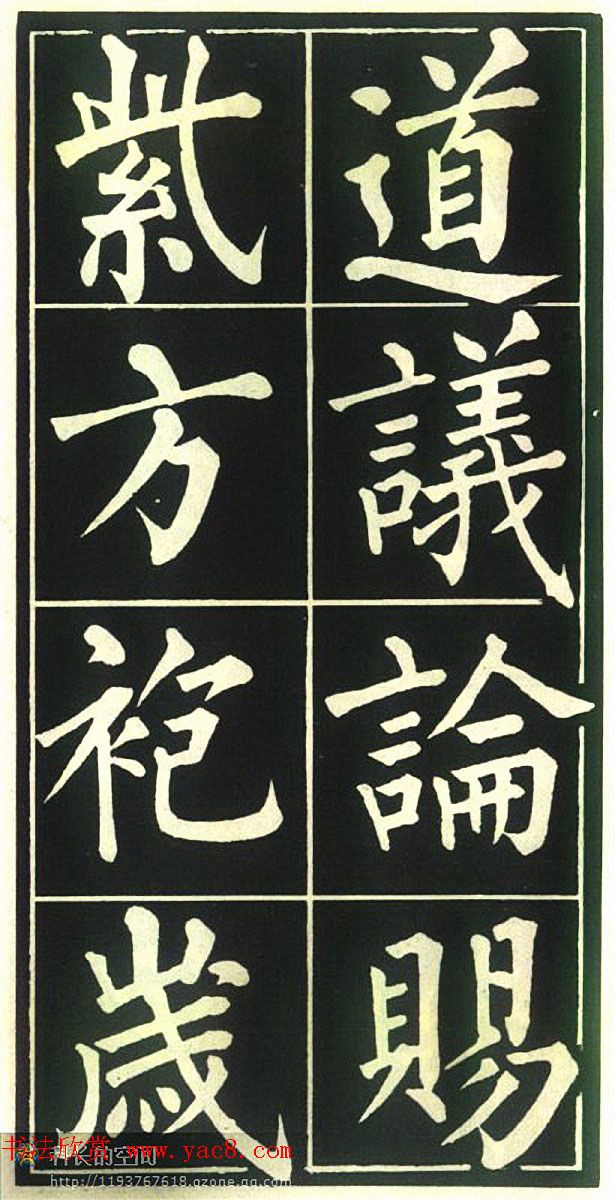 道議論賜
紫方袍歲
书法欣赏 www.yac8.com
科长的空间
http://1193767618.qzone.qq.com